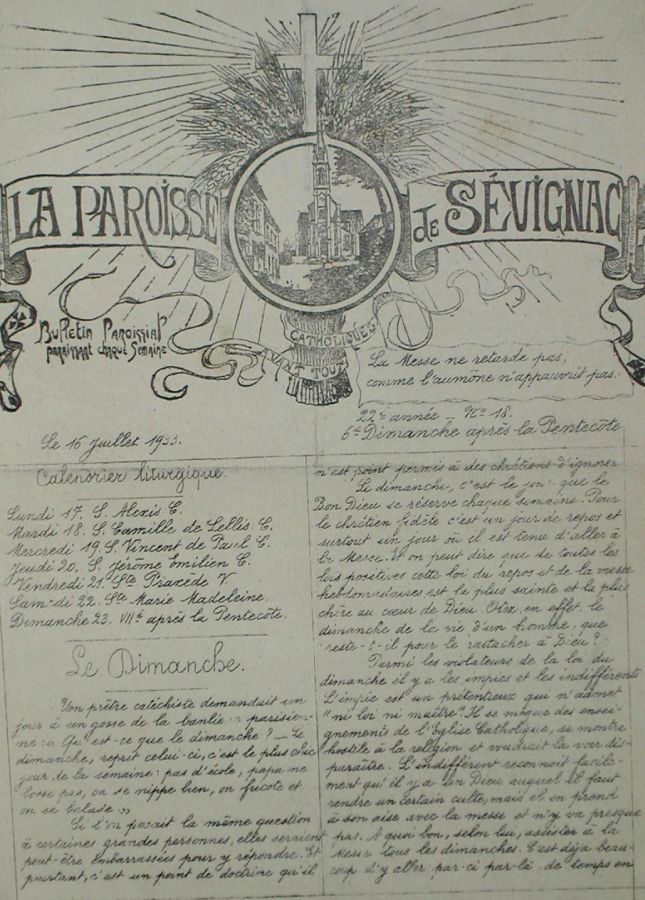 LA PAROISSE de SÉVIGNAC
CATHOLIQUES
AVANT TOUT
Bulletin Paroissial
paraissant chaque Semaine
La Messe ne retarde pas,
comme l'aumône n'appauvrit pas.
22e année _ No 18.
6e Dimanche après la Pentecôte
Le 16 Juillet 1933.
Calendrier liturgique.
Lundi 17. S. Alexis C.
Mardi 18. S. Camille de Lellis C.
Mercredi 19. S. Vincent de Paul C.
Jeudi 20. S. Jérôme Emilien C.
Vendredi 21 Ste Praxède V
Samedi 22. Ste Marie Madeleine.
Dimanche 23. VIIe après la Pentecôte.
Le Dimanche.
Un prêtre catéchiste demandait un
jour à un gosse de la banlieue parisien-
ne: " Qu'est-ce que le dimanche ? _ Le
dimanche, reprit celui-ci, c'est le plus chic
jour de la semaine: pas d'école, papa ne
bosse pas, on se nippe bien, on fricote et
on se balade."
Si l'on posait la même question
à certaines grandes personnes, elles seraient
peut-être embarrassées pour y répondre. Et
pourtant, c'est un point de doctrine qu'il
n'est point permis à des chrétiens d'ignorer
Le dimanche, c'est le jour que le
Bon Dieu se réserve chaque semaine. Pour
le chrétien fidèle c'est un jour de repos et
surtout un jour où il est tenu d'aller à
la Messe. Et on peut dire que de toutes les
lois positives cette loi du repos et de la messe
hebdomadaires est la plus sainte et la plus
chère au coeur de Dieu. Otez, en effet, le
dimanche de la vie d'un homme, que
reste-t-il pour le rattacher à Dieu ?
Parmi les violateurs de la loi du
dimanche il y a les impies et les indifférents
L'impie est un prétentieux qui n'admet
"ni loi ni maître". Il se moque des ensei-
gnements de l'Eglise Catholique, se montre
hostile à la religion et voudrait la voir dis-
paraître. L'indifférent reconnaît facile-
ment qu'il y a un Dieu auquel il faut
rendre un certain culte, mais il en prend
à son aise avec la messe et n'y va presque
pas. A quoi bon, selon lui, assister à la
Messe tous les dimanches. C'est déjà beau-
coup d'y aller par-ci par-là, de temps en